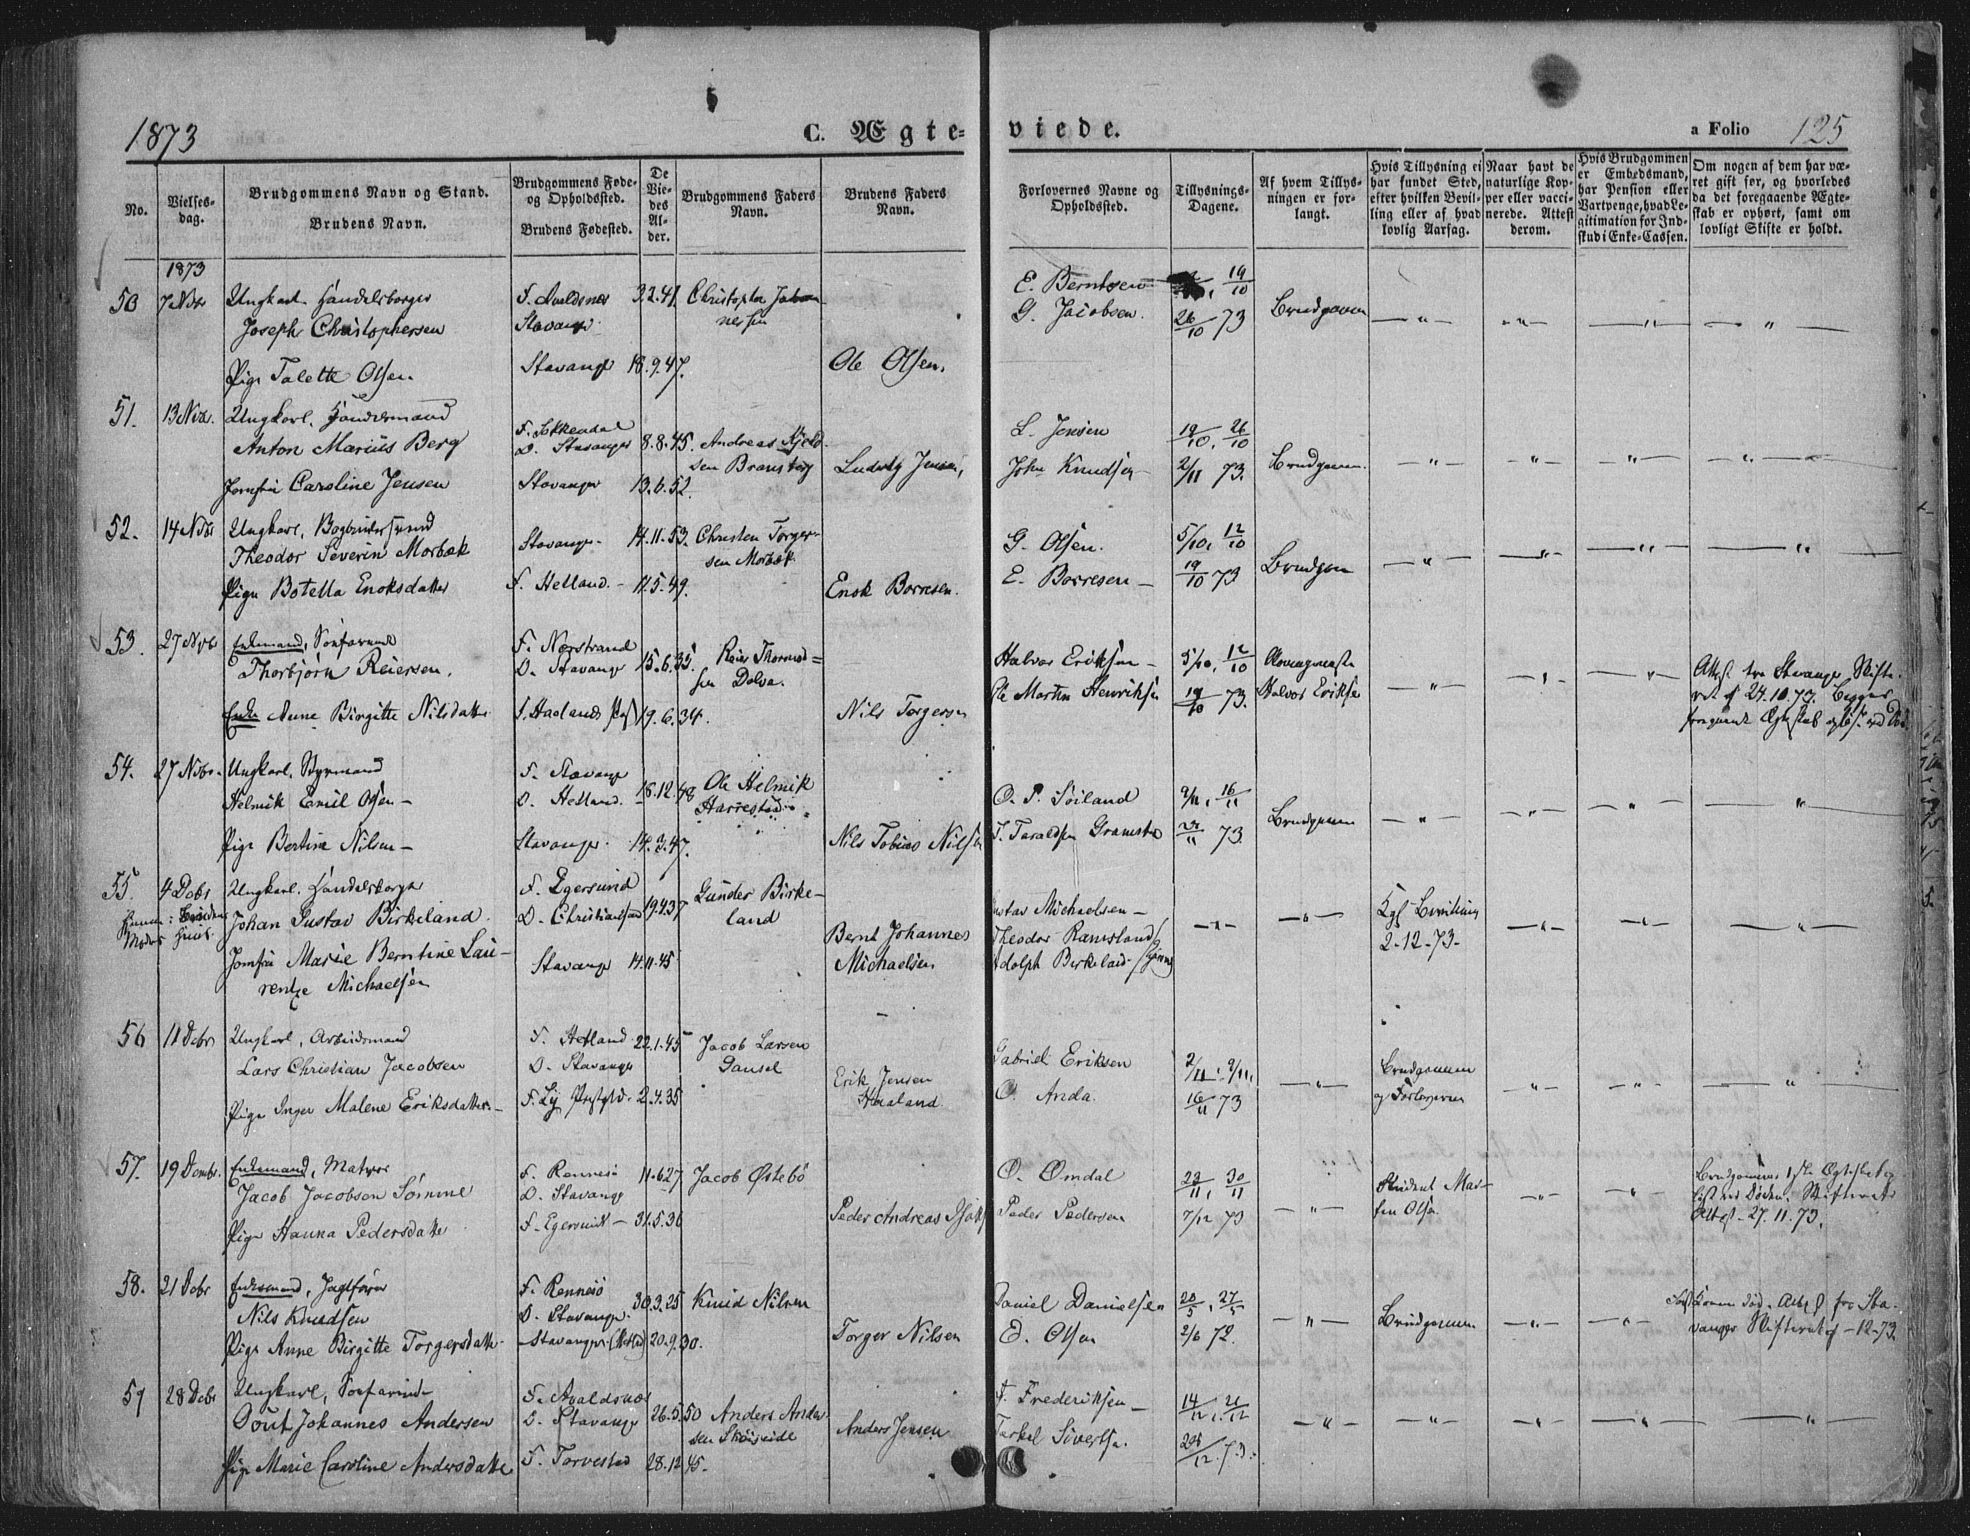 1873
C. Ægte-
viede.
a Folio 125
No.
Vielses-
dag.
Brudgommens Navn og Stand.
Brudens Navn.
Brudgommens Føde-
og Opholdssted.
Brudens Fødested.
De
Vie-
des
Al-
der.
Brudgommens Faders
Navn.
Brudens Faders
Navn.
Forlovernes Navne og
Opholdssted.
Tillysnings-
Dagene.
Af hvem Tillys-
ningen er for-
langt.
Hvis Tillysning ei
har fundet Sted,
efter hvilken Bevil-
ling eller af hvad
lovlig Aarsag.
Naar havt de
naturlige Kop-
per eller vacci-
nerede. Attest
derom.
Hvis Brudgommen
er Embedsmand,
har Pension eller
Vartpenge, hvad Le-
gitimation for Ind-
skud i Enke-Cassen.
Om nogen af dem har væ-
ret gift før, og hvorledes
da det foregaaende Ægte-
skab er ophørt, samt om
lovligt Skifte er holdt.
1873
50 7 Nbr Ungkarl. Handelsborger F. Avaldsnes 3.2.41. Christopher Johan- E. Berntsen 19/10
Joseph Christophersen Stavanger nessen G. Jacobsen. 26/10 73 Brudgomen
Pige Talette Olsen. Stavanger 18.9.47. Ole Olsen.
51. 13 Nbr. Ungkarl. Handelsmand F. Sokkendal L. Jensen 19/10. 26/10
Anton Marius Berg D. Stavanger 8.8.45. Andreas
Jomfru Caroline Jensen Stavanger 13.6.52. Ludvig Jensen, John Knudsen 2/11 73. Brudgomen
52. 14 Nbr Ungkarl, Bogbindersvend Stavanger 14.11.53. Christen Torger- G. Olsen. 5/10, 12/10
Theodor Severin Morbæk sen Morbæk.
Pige Botella Enoksdatter F. Hetland. 11.5.49. Enok Borresen. E. Borresen 19/10 73 Brudgom
53. 27 Nbr Enkemand, Søfarende F. Nerstrand 15.6.35. Reier Thormod= Halvor Eriksen 5/10, 12/10
Thorbjørn Reiersen. D. Stavanger sen Dalva.
Enke Anne Birgitte Nilsdatter F. Haalands 19.6.34. Nils Torgersen Ole Martin Henriksen 19/10 73. Halvor Eriksen
Attest fra Stavanger Skifte-
ret af 24.10.73. Begges
foregaaende Ægteskab opløst ved Død.
54. 27 Nbr. Ungkarl, Styrmand F. Stavanger 18.12.48 Ole Helmik O. P. Soiland 9/11, 16/11
Helmik Emil Olsen D. Hetland. Harrestad
Pige Bertine Nilsen Stavanger. 14.3.47. Nils Tobias Nilsen T. Taraldsen 23/11 73. Brudgomen
55. 4 Dcbr Ungkarl. Handelsborger F. Egersund 19.4.37 Gunder Birke- Gustav Michaelsen Kgl Bevilling
Johan Gustav Birkeland. D. Christiansand land Theodor Ramsland 2-12-73-
Moders Huus
Jomfru Marie Berntine Lau- Stavanger 14.11.45 Bernt Johannes Adolph Birkeland
rentze Michaelsen Michaelsen
56 11 Dcbr Ungkarl, Arbeidsmand F. Hetland 22.1.45 Jacob Larsen Gabriel Eriksen 2/11. 9/11. Brudgommen
Lars Christian Jacobsen D. Stavanger Gausel og Forloveren
Pige Inger Malene Eriksdatter F. Ly Præstgld. 2.4.35 Erik Jensen O. Anda. 16/11 73
Haaland.
57. 19 Decmbr. Enkemand, Matros F. Rennesø 11.6.27 Jacob Østebö O. Omdal 23/11, 30/11 Student Mar-
Jacob Jacobsen Sömme D. Stavanger tin Olsen.
Pige Hanna Pedersdatter F. Egersund 31.5.36 Peder Andreas Peder Pedersen 7/12 73
Brudgomens 1ste Ægteskab
løst ved Døden. Skifterets
Attest 27.11.73.
58. 21 Dcbr Enkemand, Jagtfører F. Rennesö 30.3.25 Knud Nilsen Daniel Danielsen 20/5, 27/5 Brudgommen
Nils Knudsen D. Stavanger.
Pige Anne Birgitte Torgersdatter Stavanger (Hetland) 20.9.30. Torger Nilsen E. Olsen 2/6 72.
Død. Attest fra Sta-
vanger Skifteret -12-73.
59 28 Dcbr Ungkarl, Søfarende F. Avaldsnæs 26.5.50 Anders Ander- F. Frederiksen 14/12. 21/12
Johannes Andersen D. Stavanger sen
Pige Marie Caroline Andersdatter F. Torvestad 28.12.45. Anders Jensen Torkel Sivertsen. 26/12.73.